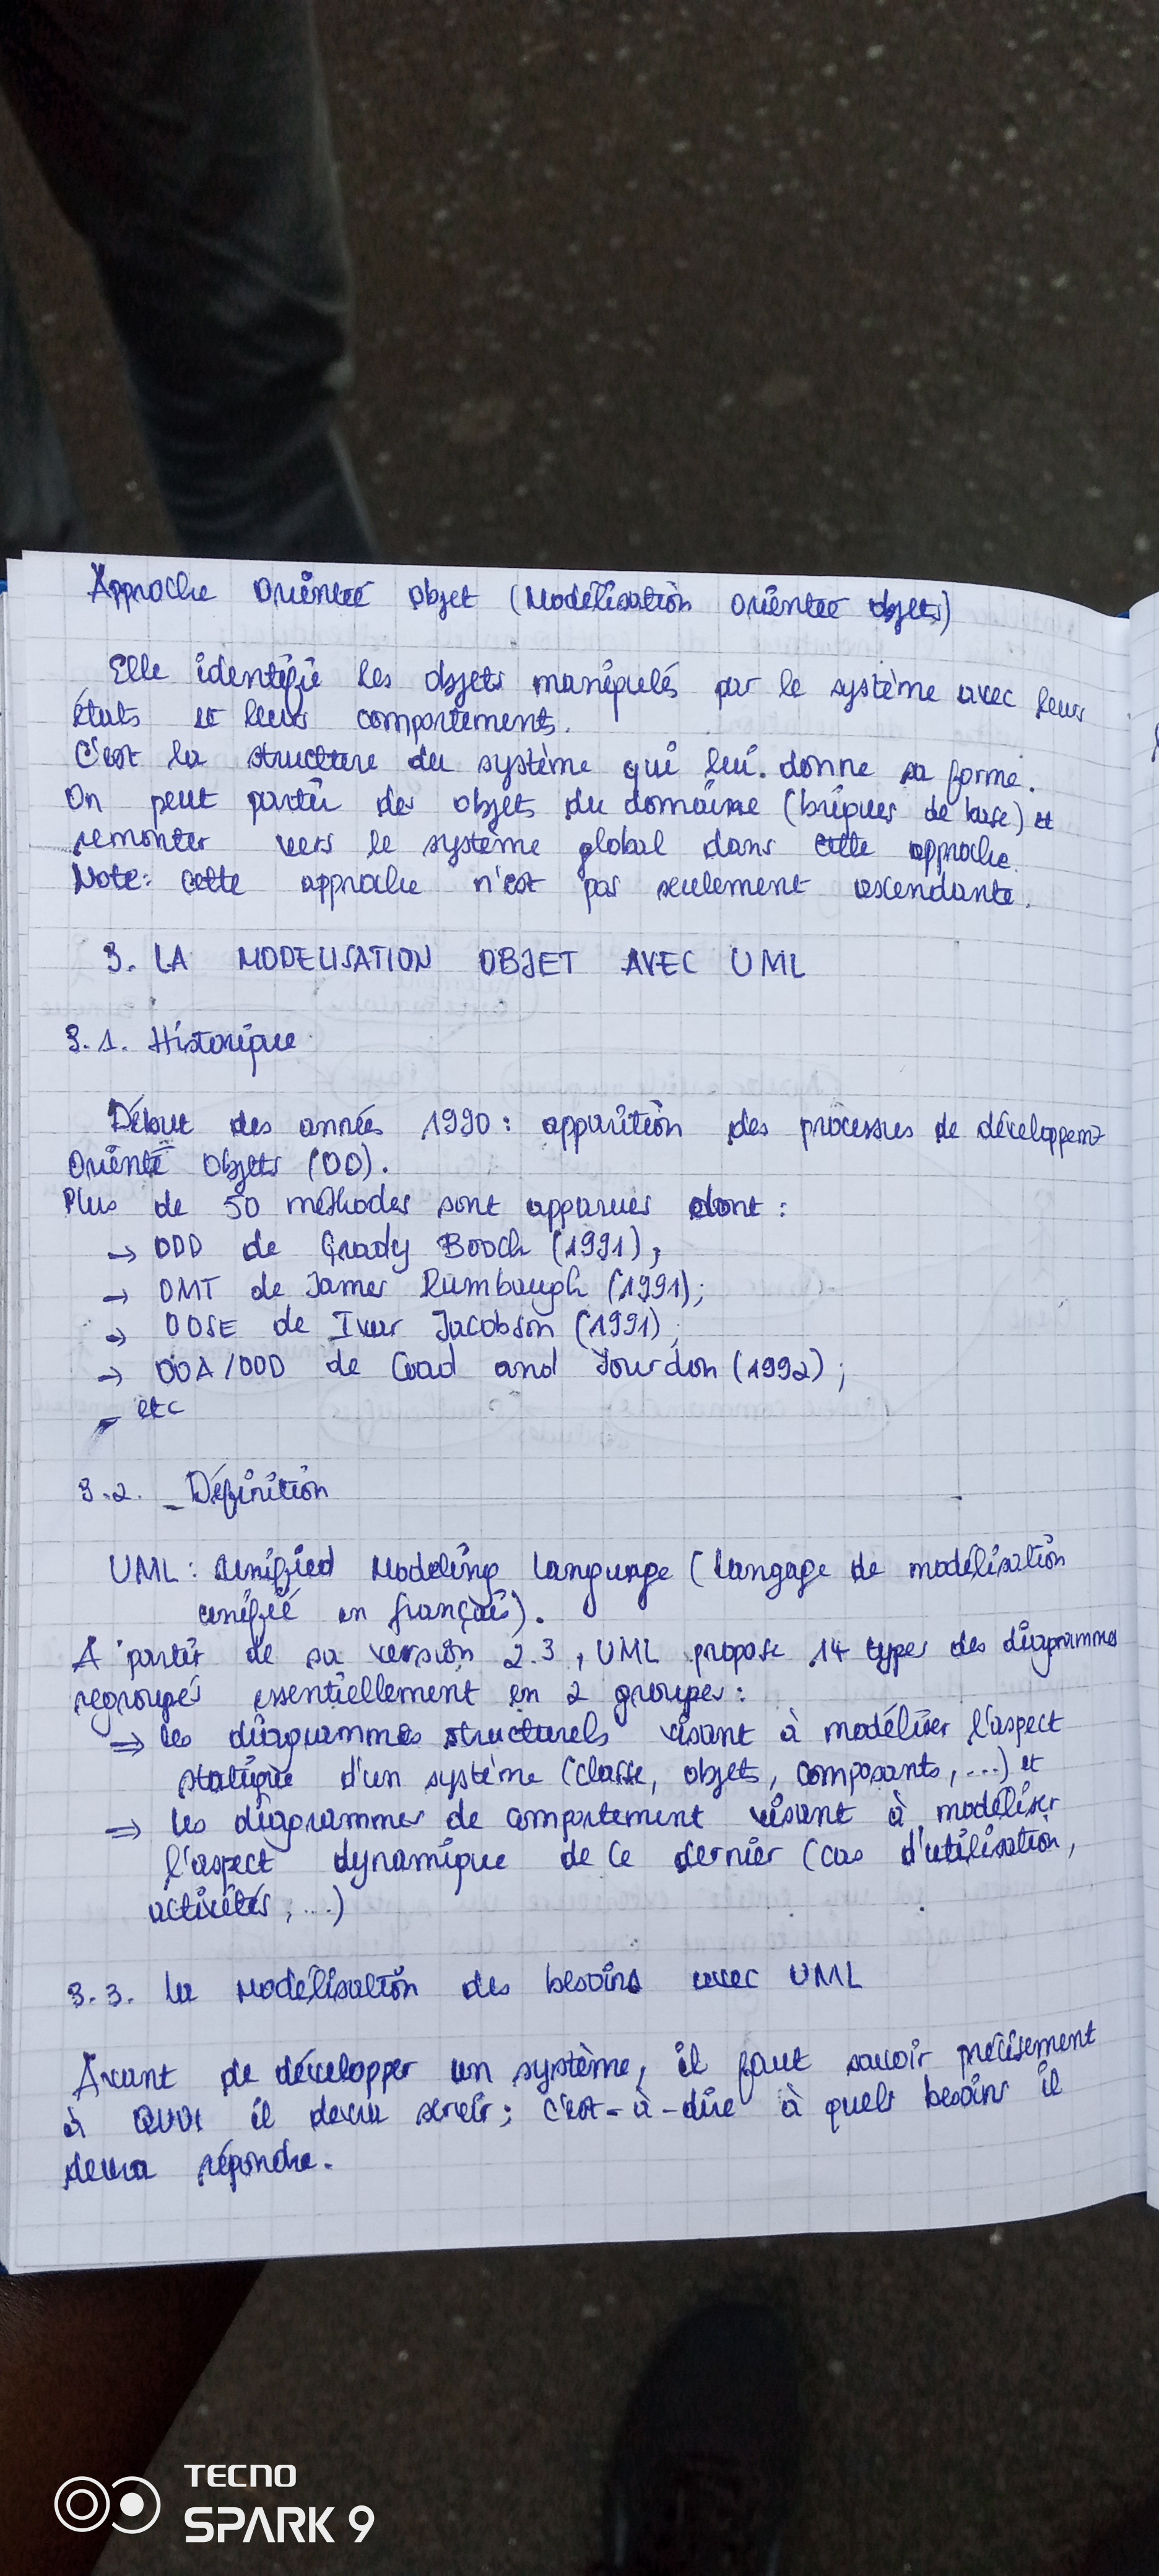 Approche orientée objet (Modélisation orientée objets)
Elle identifie les objets manipulés par le système avec leurs
états et leurs comportements.
C'est la structure du système qui lui donne sa forme.
On peut partir des objets du domaine (briques de base) et
remonter vers le système global dans cette approche.
Note: cette approche n'est pas seulement ascendante.
3. LA MODELISATION OBJET AVEC UML
3.1. Historique
Début des années 1990 : apparition des processus de développemt
Orienté Objets (OO).
Plus de 50 méthodes sont apparues dont :
→ OOD de Grady Booch (1991);
→ OMT de James Rumbaugh (1991);
→ OOSE de Ivar Jacobson (1991);
→ OOA/OOD de Coad and Yourdon (1992);
- etc
3.2. Définition
UML : Unified Modeling Language (Langage de modélisation
unifié en français).
A partir de sa version 2.3, UML propose 14 types des diagrammes
regroupés essentiellement en 2 groupes :
⇒ les diagrammes structurels visant à modéliser l'aspect
statique d'un système (classe, objets, composants, ...) et
⇒ les diagrammes de comportement visant à modéliser
l'aspect dynamique de ce dernier (cas d'utilisation,
activités, ...)
3.3. La modélisation des besoins avec UML
Avant de développer un système, il faut savoir précisement
à QUOI il devra servir; c'est-à-dire à quels besoins il
devra répondre.
TECNO
SPARK 9